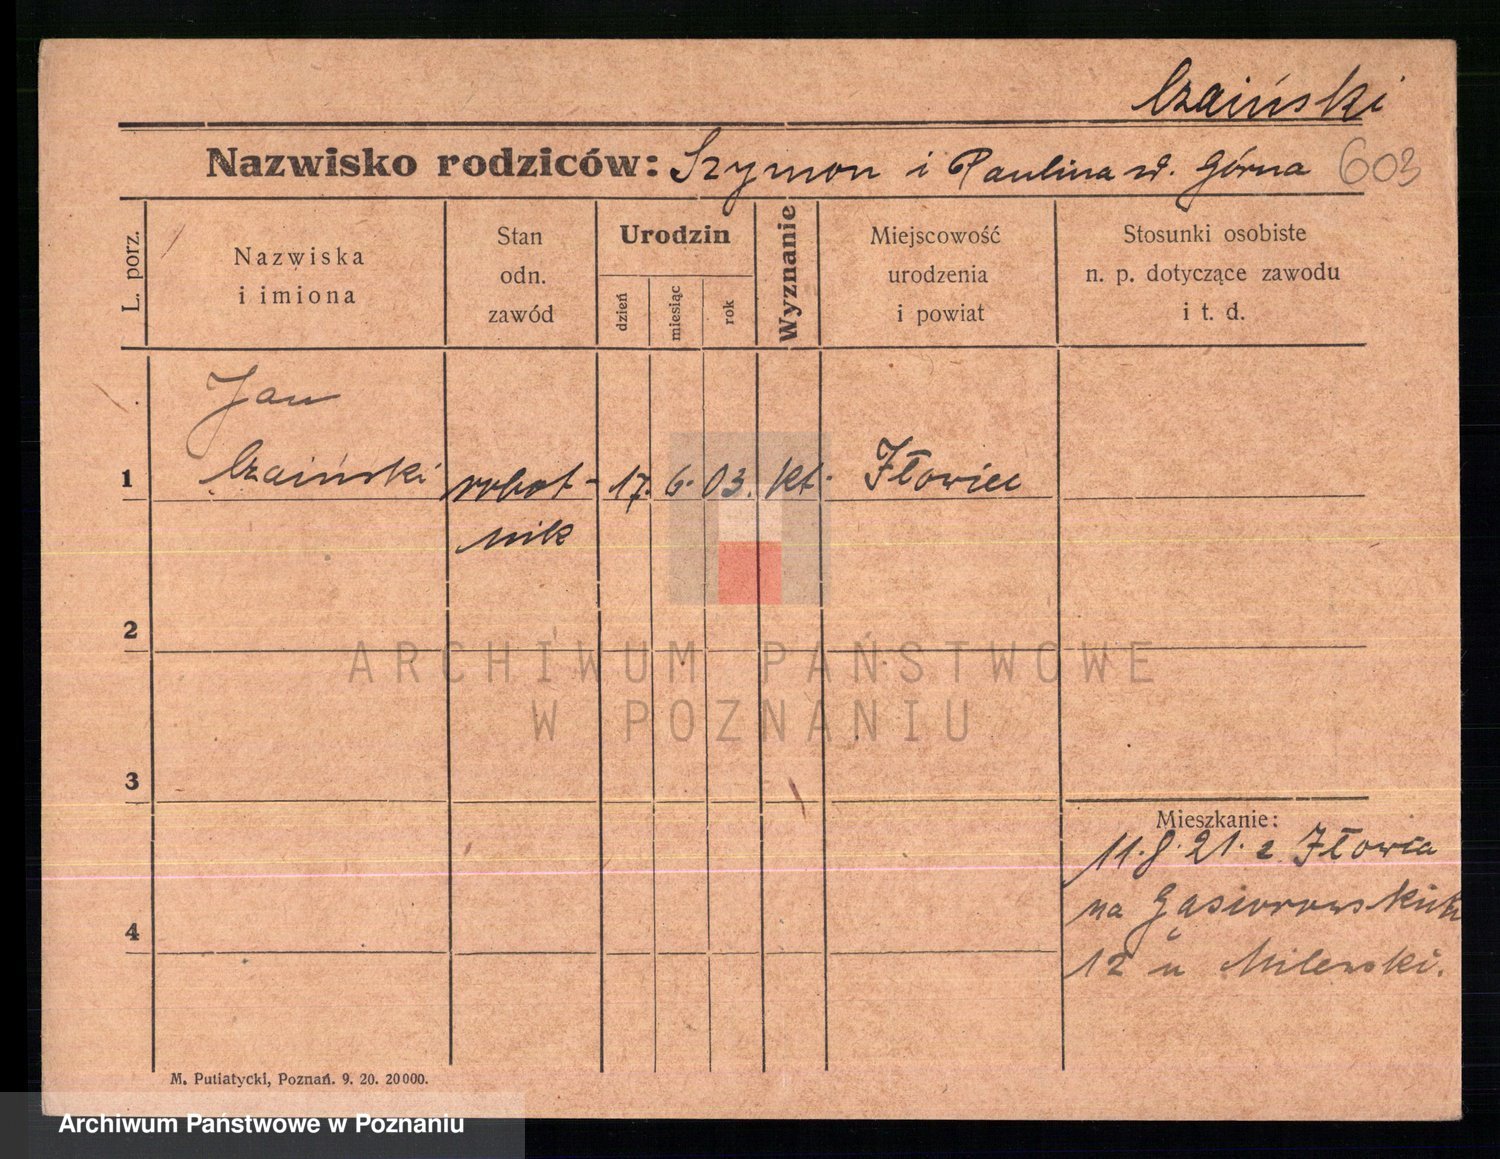 Czaiński
Nazwisko rodziców: Szymon i Paulina zd. Górna 603
L. porz.
Nazwiska
i imiona
Stan
odn.
zawód
Urodzin
dzień
miesiąc
rok
Wyznanie
Miejscowość
urodzenia
i powiat
Stosunki osobiste
n. p. dotyczące zawodu
i t. d.
Jan
1 Czaiński robot- 17. 6. 03. kt. Iłowiec
nik
2
ARCHIWUM PAŃSTWOWE
W POZNANIU
3
Mieszkanie:
11. 8. 21. z Iłowca
na Gąsiorowskich
4
12 u Milewski.
M. Putiatycki, Poznań. 9. 20. 20000.
Archiwum Państwowe w Poznaniu